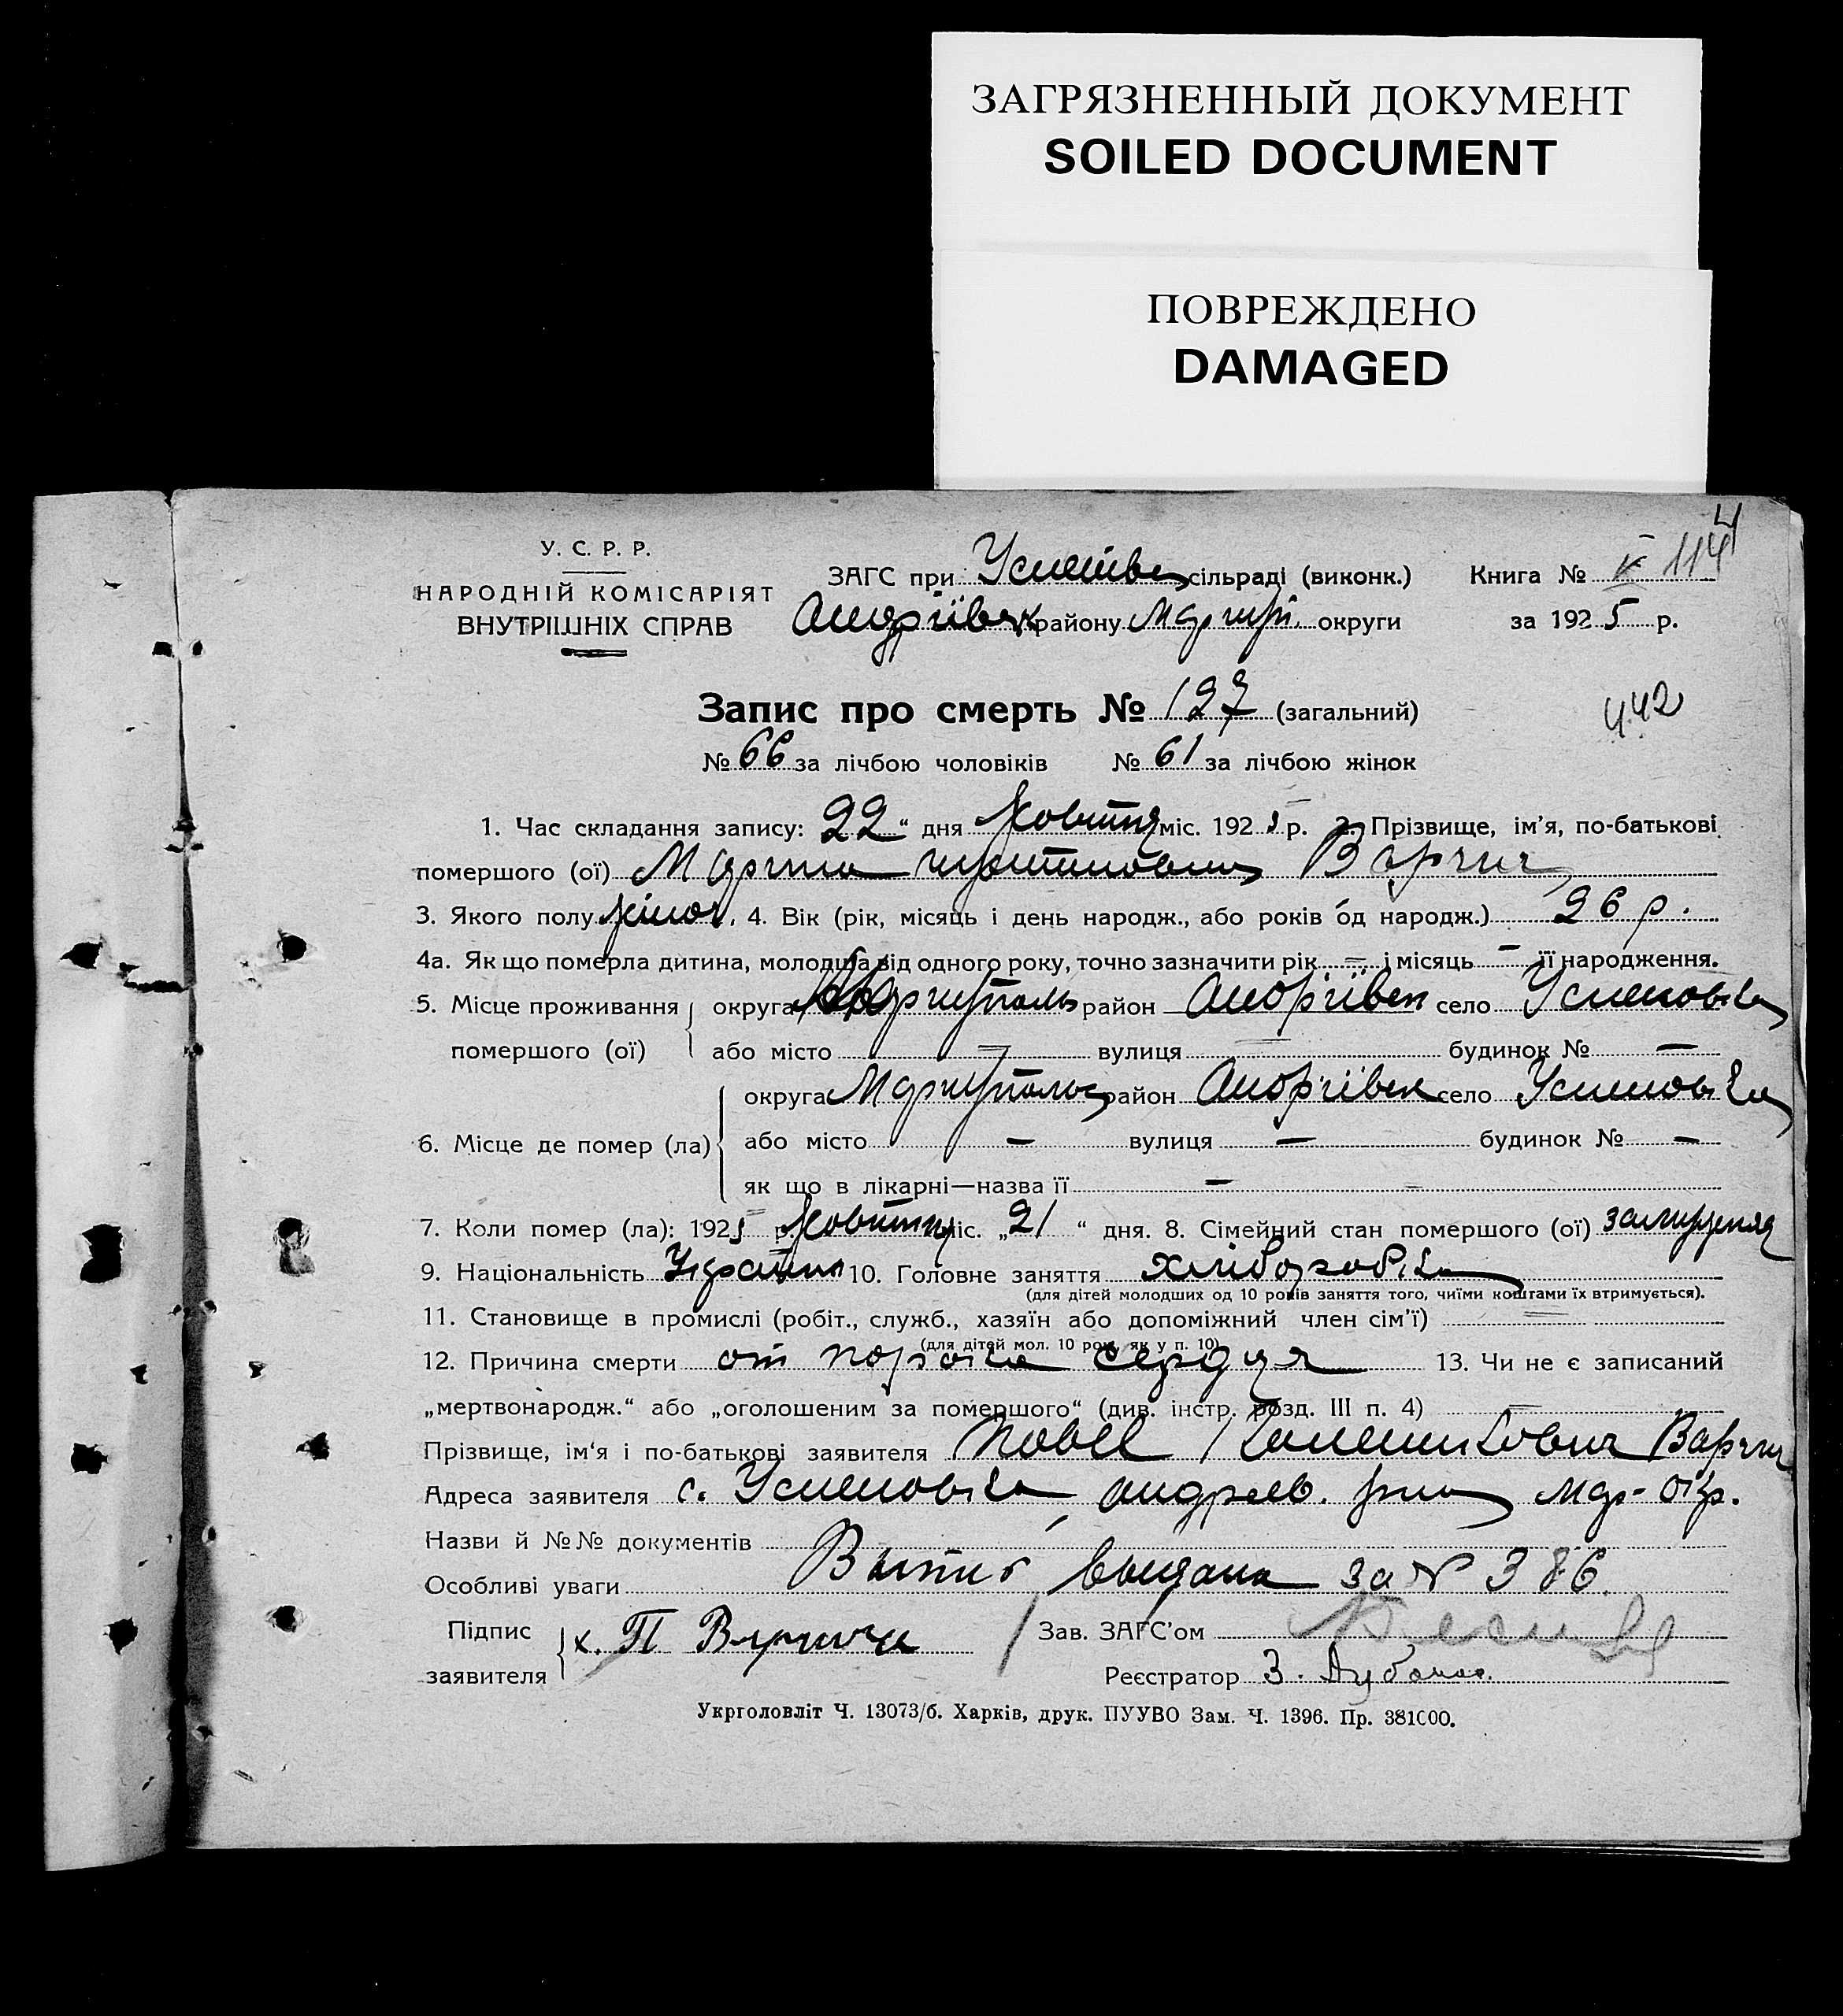 ЗАГРЯЗНЕННЫЙ ДОКУМЕНТ
SOILED DOCUMENT
ПОВРЕЖДЕНО
DAMAGED
У. С. Р. Р.
НАРОДНІЙ КОМІСАРІЯТ
ВНУТРІШНІХ СПРАВ
ЗАГС при сільраді (виконк.) Книга № 114
Андріївск району Маріуп. округи за 1925 р.
442
Запис про смерть № 127 (загальний)
№ 66 за лічбою чоловіків № 61 за лічбою жінок
1. Час складання запису: 22 “ дня Жовтня міс. 1925 р. 2. Прізвище, ім'я, по-батькові
помершого (ої) Варчич
3. Якого полу жіноч. 4. Вік (рік, місяць і день народж., або років од народж.) 26 р.
4а. Як що померла дитина, молодша від одного року, точно зазначити рік — і місяць — її народження.
5. Місце проживання округа Маріуполь район Андріївск село Успеновка
помершого (ої) або місто — вулиця — будинок № —
округа Маріуполь район Андріївск село Успеновка
6. Місце де помер (ла) або місто — вулиця — будинок № —
як що в лікарні—назва її —
7. Коли помер (ла): 1925 р. Жовтня міс. „21 “ дня. 8. Сімейний стан помершого (ої)
9. Національність 10. Головне заняття хліборобка
(для дітей молодших од 10 років заняття того, чиїми коштами їх втримується).
11. Становище в промислі (робіт., служб., хазяїн або допоміжний член сім'ї) —
(для дітей мол. 10 рок. як у п. 10)
12. Причина смерти от порока сердця 13. Чи не є записаний
„мертвонародж.“ або „оголошеним за помершого“ (див. інстр. розд. III п. 4) —
Прізвище, ім'я і по-батькові заявителя Павел Варчич
Адреса заявителя с. Успеновка Андреев. р-на Мар- окр.
Назви й №№ документів
Особливі уваги Выпис выдана за № 386.
Підпис
заявителя П Варчич
Зав. ЗАГС'ом
Реєстратор З.
Укрголовліт Ч. 13073/б. Харків, друк. ПУУВО Зам. Ч. 1396. Пр. 381000.